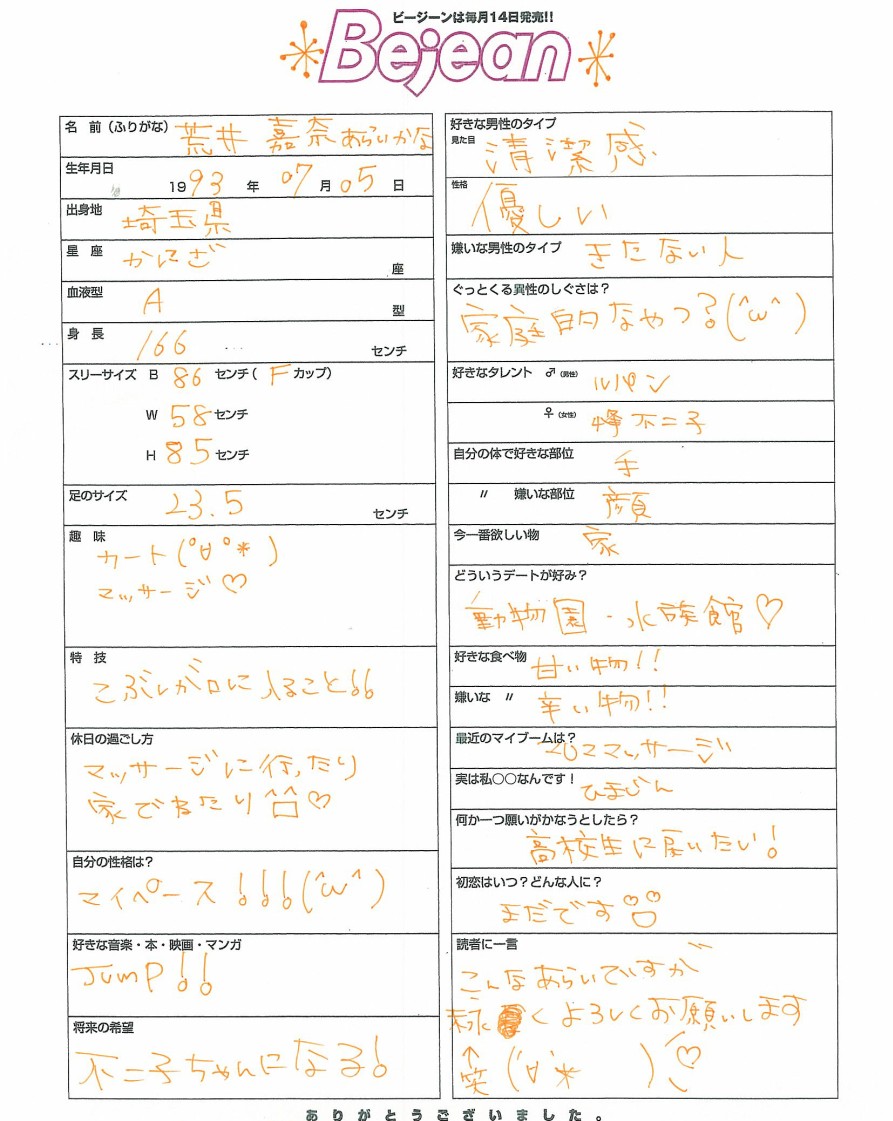 ビージーンは毎月14日発売!!
Bejean
名 前（ふりがな） 荒井 嘉奈 あらいかな
生年月日
1993年 07月05日
出身地 埼玉県
星 座 かにざ 座
血液型 A 型
身 長 166 センチ
スリーサイズ B 86 センチ( Fカップ)
W 58 センチ
H 85 センチ
足のサイズ 23.5 センチ
趣 味
カート(°∀°*)
マッサージ♡
特 技
こぶしが口に入ること!!
休日の過ごし方
マッサージに行ったり
家でねたり♡
自分の性格は?
マイペース!!!(^ω^)
好きな音楽・本・映画・マンガ
Jump!!
将来の希望
不二子ちゃんになる!
好きな男性のタイプ
見た目 清潔感
性格 優しい
嫌いな男性のタイプ きたない人
ぐっとくる異性のしぐさは?
家庭的なやつ?!(^ω^)
好きなタレント ♂(男性) ルパン
♀(女性) 峰不二子
自分の体で好きな部位 手
〃 嫌いな部位 顔
今一番欲しい物 家
どういうデートが好み?
動物園・水族館♡
好きな食べ物 甘い物!!
嫌いな 〃 辛い物!!
最近のマイブームは?
マッサージ
実は私○○なんです!
ひまじん
何か一つ願いがかなうとしたら?
高校生に戻いたい!
初恋はいつ?どんな人に?
まだです
読者に一言
こんなあらいですが
末永くよろしくお願いします
↑
笑 (°∀°*)♡
ありがとうございました。